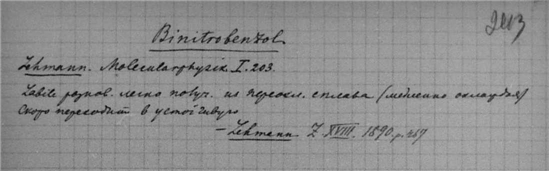 2003
Binitrobenzol
Lehmann. Molecularphysik I. 203.
Labile разнов. легко получ. из переохл. сплава (медленно охлаждая)
Скоро переходит в устойчивую
– Lehmann Z. XVIII. 1890. p. 467